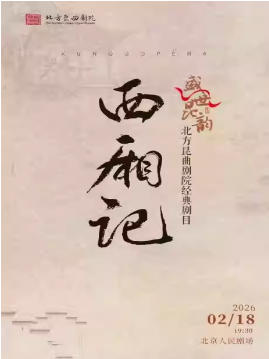 北方昆曲剧院
KUNQUOPERA
西厢记
盛世昆韵
北方昆曲剧院经典剧目
2026
02/18
19:30
北京人民剧场